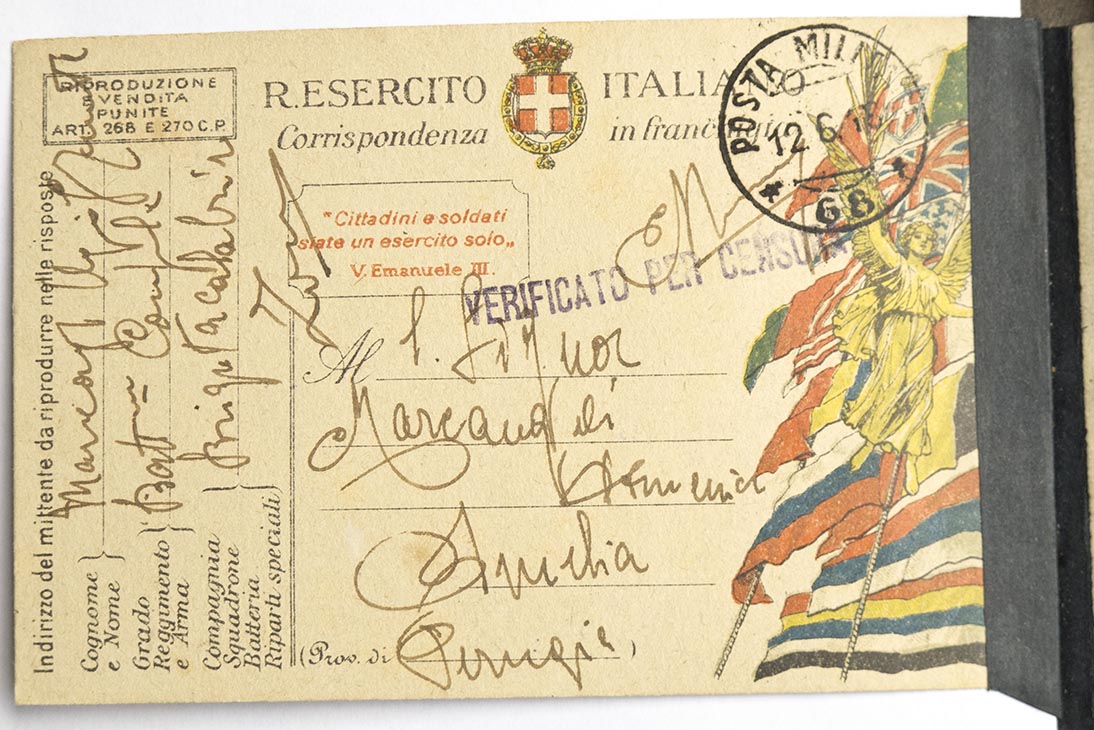 RIPRODUZIONE
VENDITA
PUNITE
ART. 268 E 270 C.P.
R. ESERCITO ITALIANO
Corrispondenza in franchigia
POSTA MILI
12 6 18
68
"Cittadini e soldati
siate un esercito solo„
V. Emanuele III.
VERIFICATO PER CENSURA
Al
Signor
Marcangeli
Amelia
(Prov. di Perugia)
Indirizzo del mittente da riprodurre nelle risposte
Cognome
e Nome
Marcangeli
Grado
Reggimento
e Arma
Compagnia
Squadrone
Batteria
Riparti speciali
Brigata Calabria